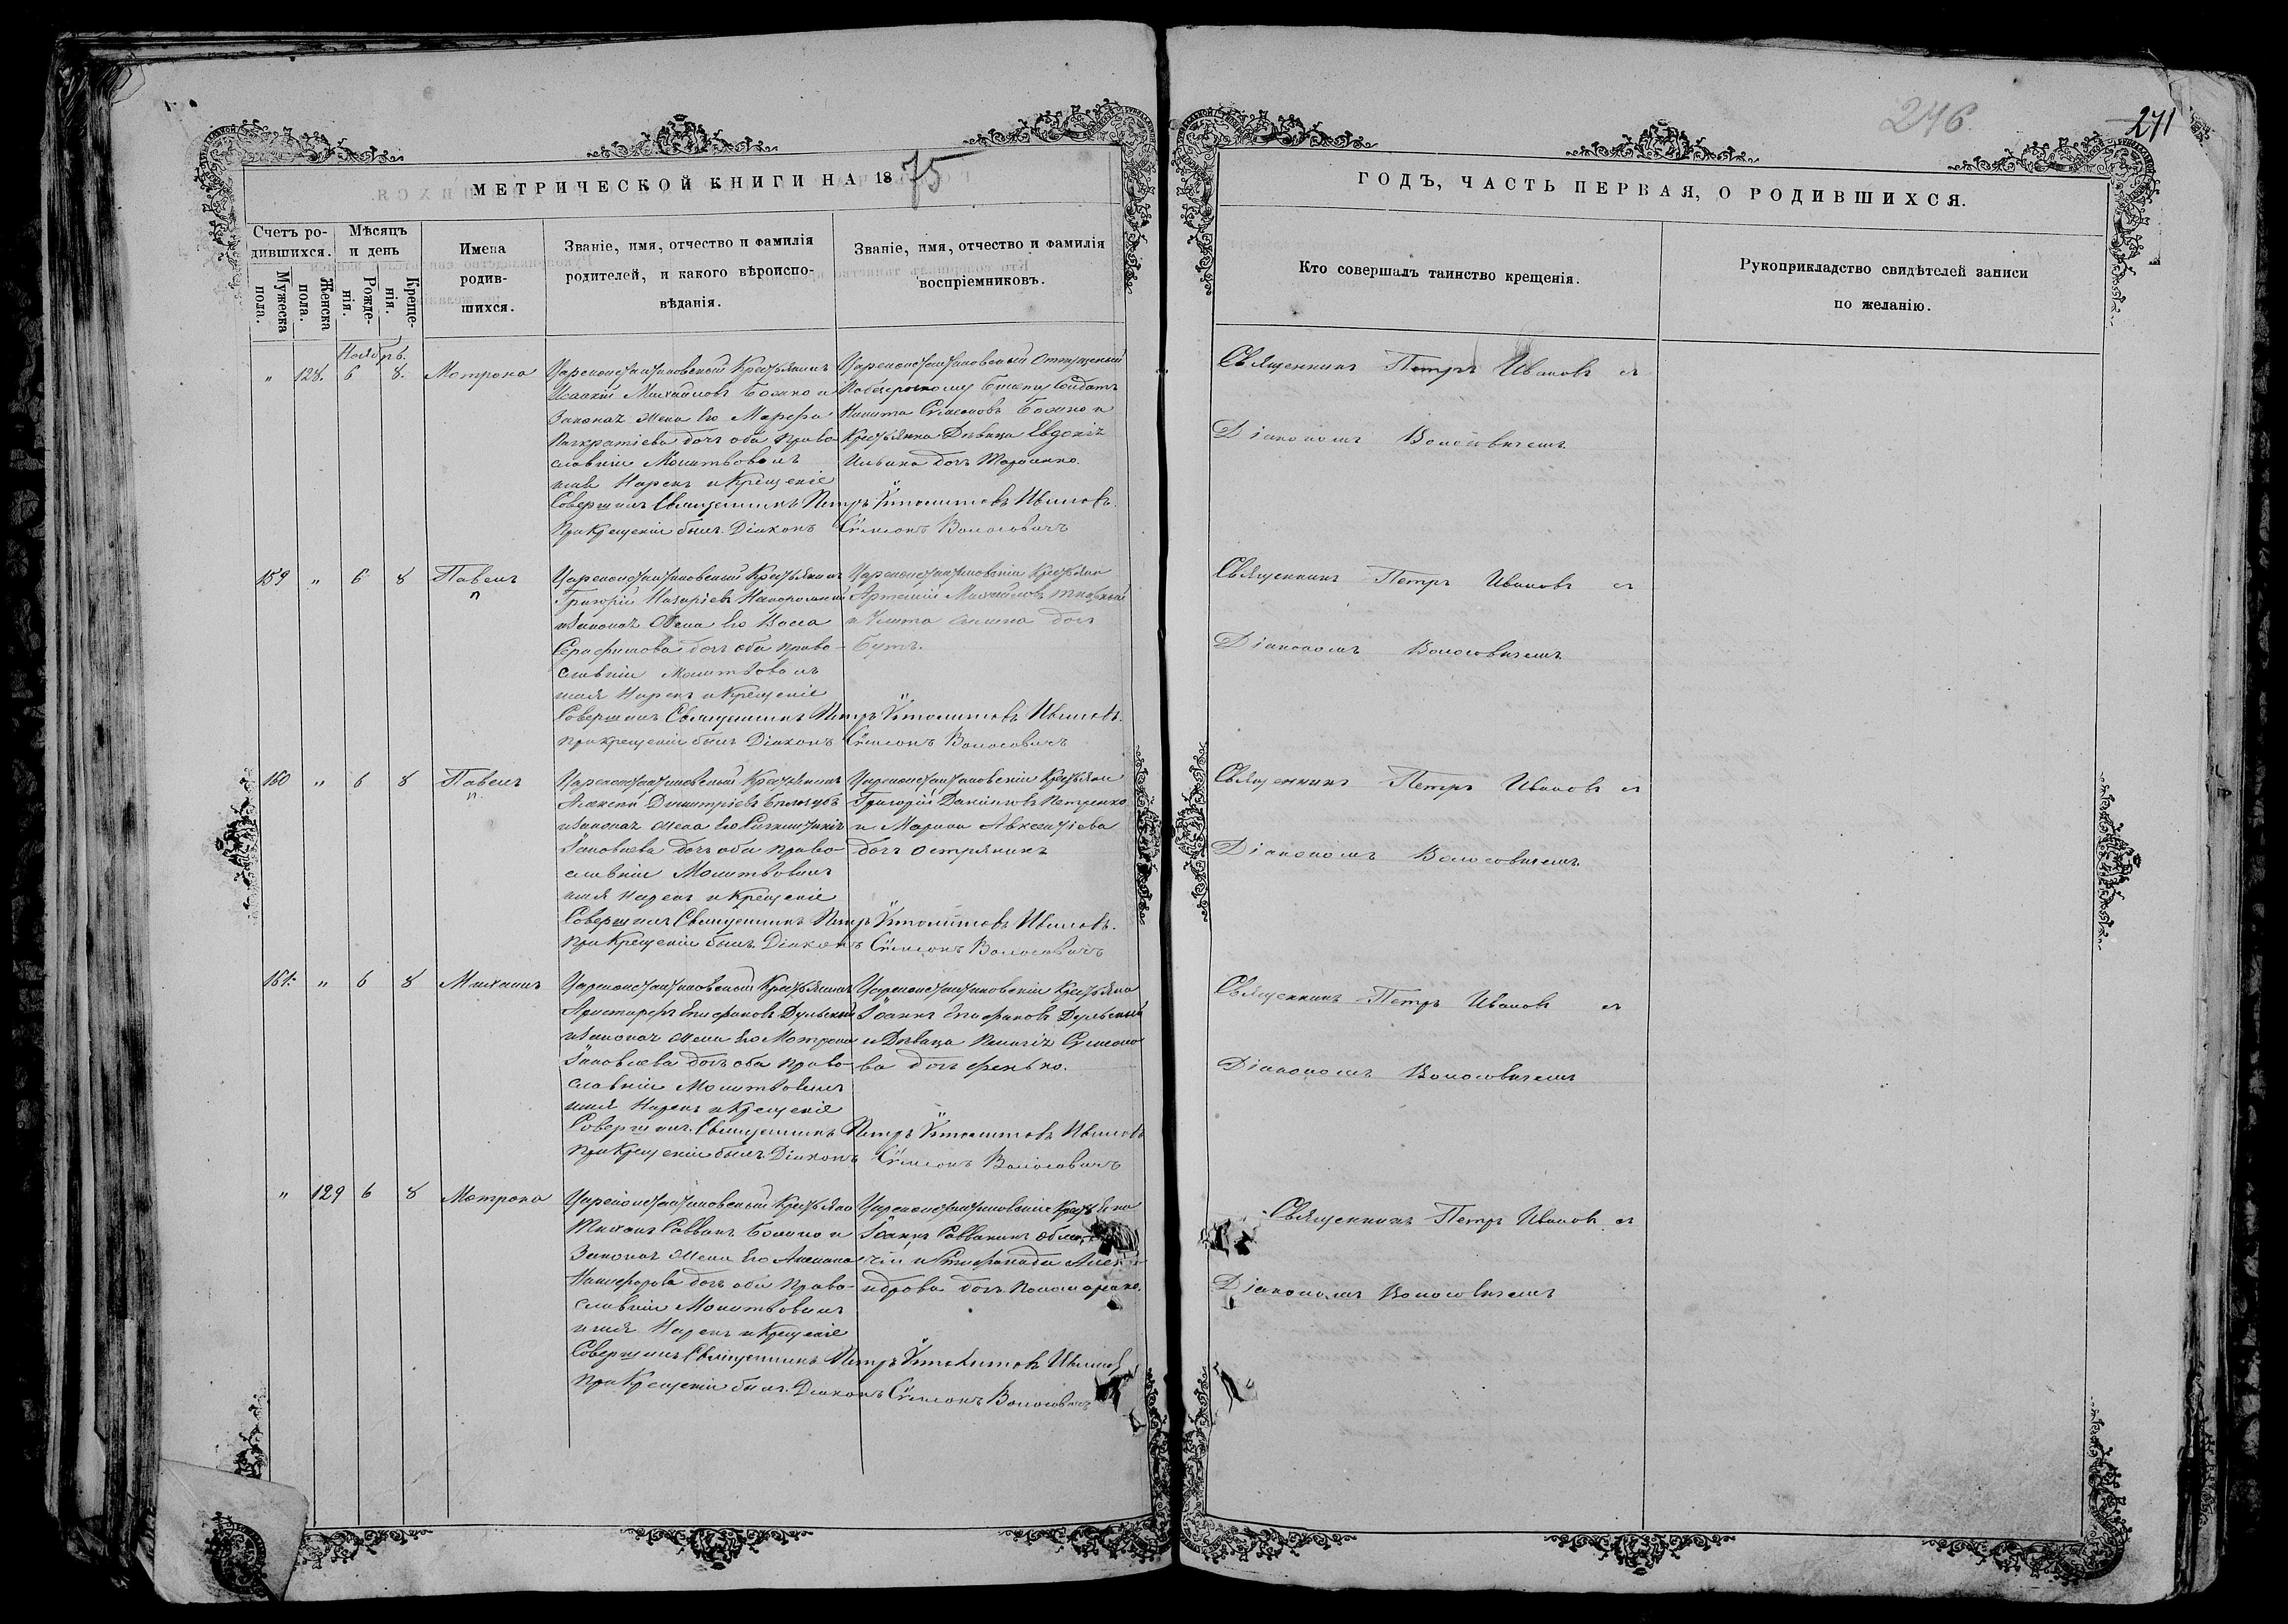 276
271
МЕТРИЧЕСКОЙ КНИГИ НА 1875
ГОДЪ, ЧАСТЬ ПЕРВАЯ, О РОДИВШИХСЯ.
Счетъ родившихся.
Мужеска пола.
Женска пола.
Мѣсяцъ и день
Рожденія.
Крещенія.
Имена родившихся.
Званіе, имя, отчество и фамилія
родителей, и какого вѣроиспо-
вѣданія.
Званіе, имя, отчество и фамилія
воспріемниковъ.
Кто совершалъ таинство крещенія.
Рукоприкладство свидѣтелей записи
по желанію.
Ноябрь.
" 128. 6 8. Мотрона
Цареконстантиновскій Крестьянинъ
Исаакій Михайловъ Божко и
Законая жена Его Марфа
Панкратіева дочь оба Право-
славніи Молитвовалъ
имя Нарекъ и Крещеніе
Совершилъ Священникъ Петръ Ипполитовъ Ивановъ.
При Крещеніи былъ Діаконъ Сѵмеонъ Волосовичъ
Цареконстантиновскій Отпущеный
Солдатъ
Никита Сѵмеоновъ Божко и
Крестьянка Дѣвица Евдокія
Ильина дочь
Священникъ Петръ Ивановъ съ
Діакономъ Волосовичемъ.
159 " 6 8 Павелъ
Цареконстантиновскій Крестьянинъ
Григорій Назаріевъ
и Законая Жена Его Васса
Серафимова дочь оба Право-
славніи Молитвовалъ
имя Нарекъ и Крещеніе
Совершилъ Священникъ Петръ Ипполитовъ Ивановъ.
При крещеніи былъ Діаконъ Сѵмеонъ Волосовичъ
Цареконстантиновскіи Крестьяни
Артемій Михайловъ
и дочь
Бутъ.
Священникъ Петръ Ивановъ съ
Діакономъ Волосовичемъ.
160 " 6 8 Павелъ
Цареконстантиновскій Крестьянинъ
Алексѣй Димитріевъ
и Законая жена Его
Іаковлева дочь оба право-
славніи Молитвовалъ
имя Нарекъ и Крещеніе
Совершилъ Священникъ Петръ Ипполитовъ Ивановъ.
При Крещеніи былъ Діаконъ Сѵмеонъ Волосовичъ
Цареконстантиновскіи Крестьяни
Григорій Даніиловъ Петренко
и Марина Авксентіева
дочь
Священникъ Петръ Ивановъ съ
Діакономъ Волосовичемъ.
161. " 6 8 Михаилъ
Цареконстантиновскій Крестьянинъ
Аристархъ Епифановъ Дульскій
и Законая жена Его Мотрона
Іаковлева дочь оба Право-
славніи Молитвовалъ
имя Нарекъ и Крещеніе
Совершилъ Священникъ Петръ Ипполитовъ Ивановъ
При Крещеніи былъ Діаконъ Сѵмеонъ Волосовичъ
Цареконстантиновскіи Крестьяни
Іоаннъ Епифановъ Дульскій
и Дѣвица Сѵмеоно-
ва дочь Фенько.
Священникъ Петръ Ивановъ съ
Діакономъ Волосовичемъ
" 129 6 8 Мотрона
Цареконстантиновскій Крестьяни
Тихонъ Саввинъ Божко и
Законая жена Его
Никифорова дочь оба Право-
славніи Молитвовалъ
имя Нарекъ и Крещеніе
Совершилъ Священникъ Петръ Ипполитовъ Ивановъ
При Крещеніи былъ Діаконъ Сѵмеонъ Волосовичъ
Цареконстантиновскіе Крестьяни
Іоаннъ Саввинъ
и Стефанида Алекса-
ндрова дочь Пономаренко.
Священникъ Петръ Ивановъ съ
Діакономъ Волосовичемъ